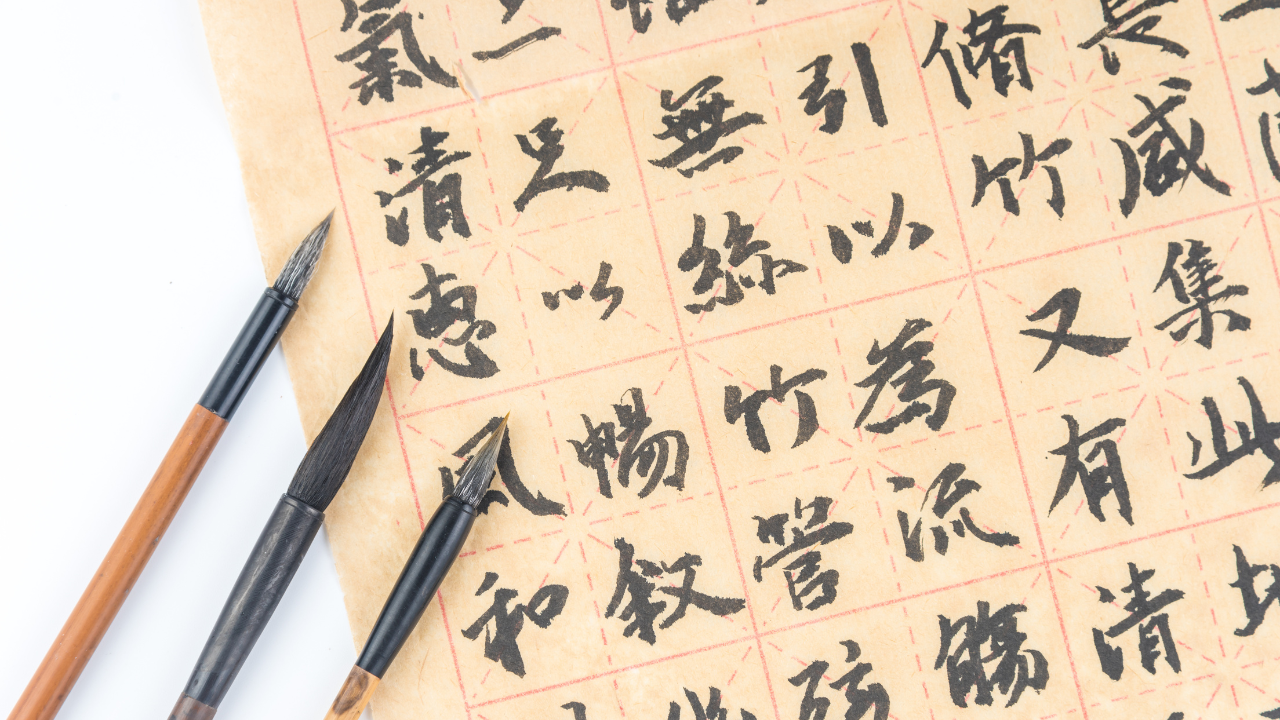 長咸集此地
脩竹又有清
引以為流觴
無絲竹管弦
足以暢敘
氣清惠風和